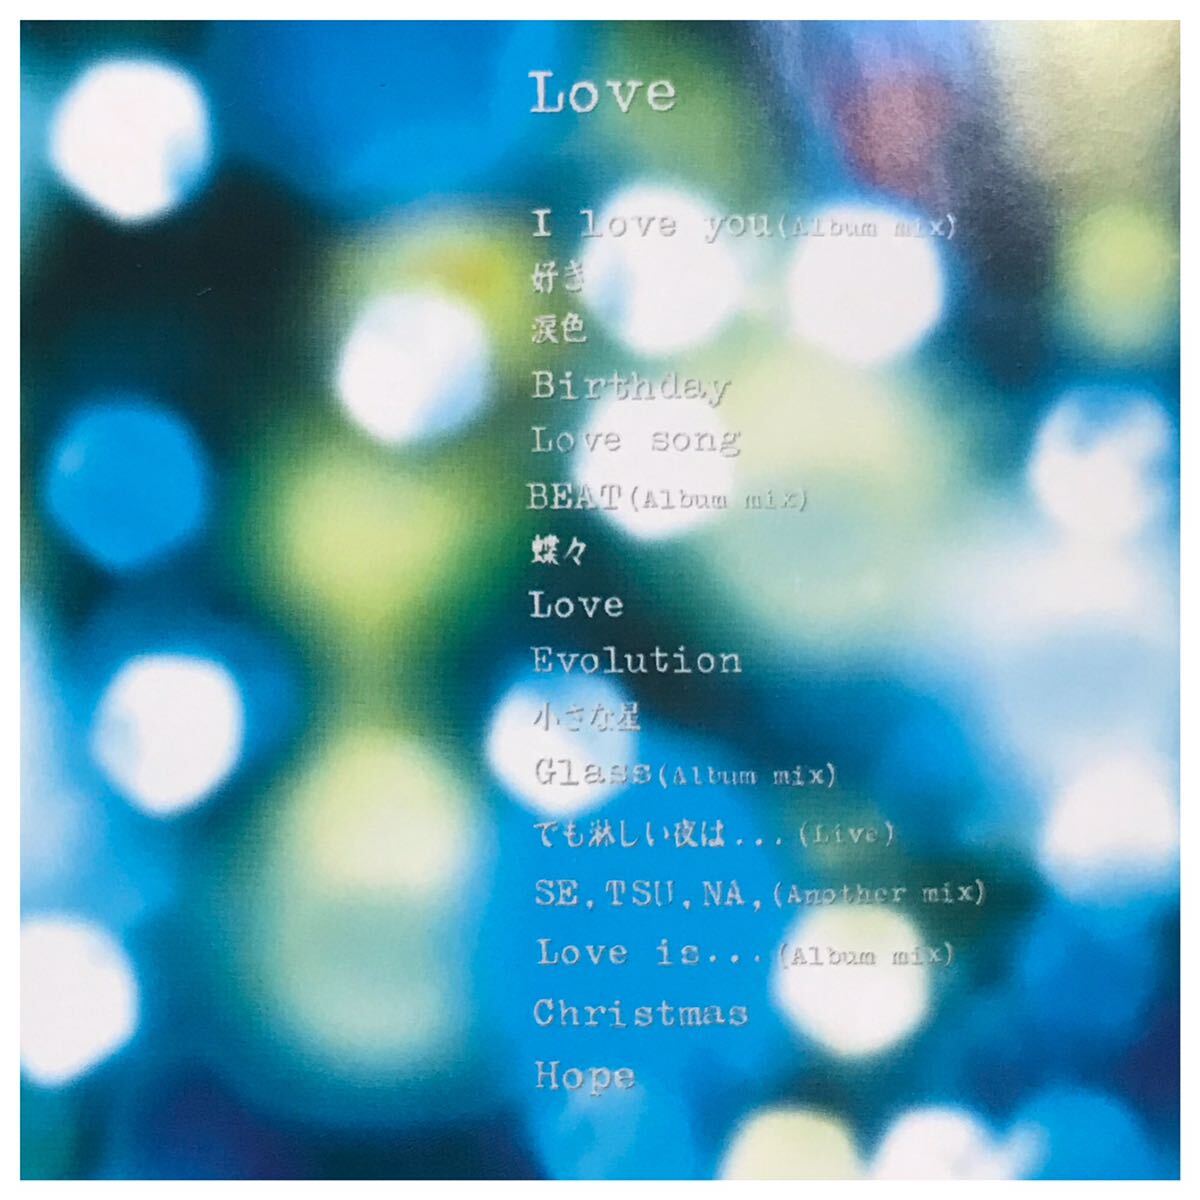 Love
I love you(Album mix)
好き
涙色
Birthday
Love song
BEAT(Album mix)
蝶々
Love
Evolution
小さな星
Glass(Album mix)
でも淋しい夜は...(Live)
SE,TSU,NA,(Another mix)
Love is...(Album mix)
Christmas
Hope